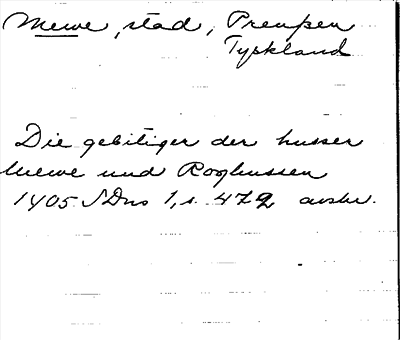 Mewe, stad, Preuβen
Tyskland
Die gebitiger der husser
Mewe und Roghussen
1405 SDns 1, s. 472 avskr.